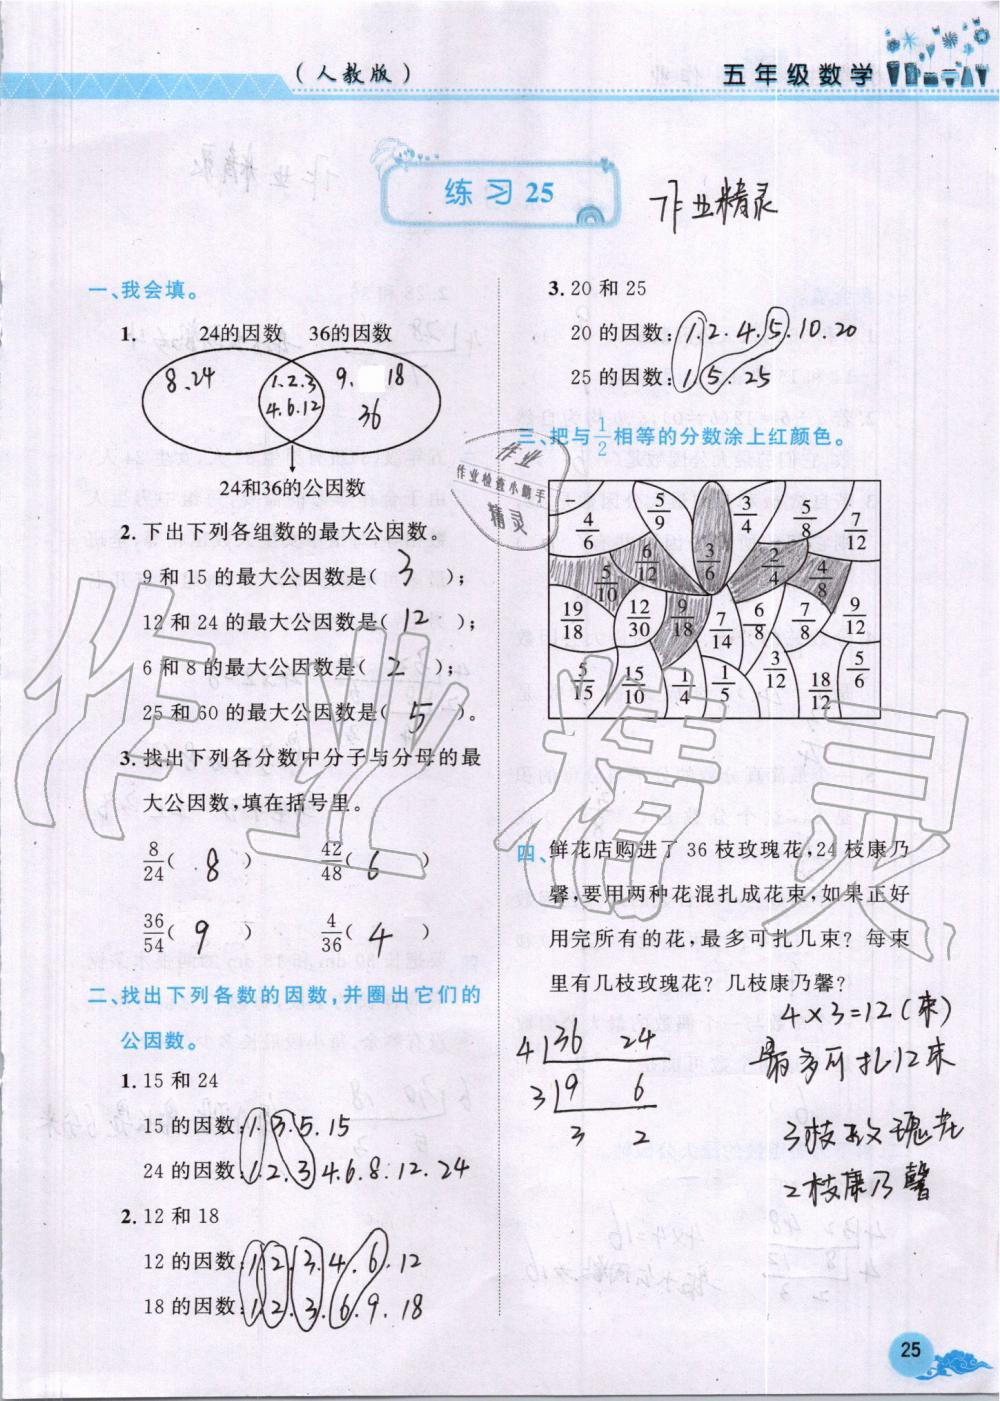 (人教版)
五年级数学
练习25
作业精灵
一、我会填。
1. 24的因数 36的因数
8.24
1.2.3
4.6.12
9. 18
36
24和36的公因数
2. 下出下列各组数的最大公因数。
9和15的最大公因数是( 3 );
12和24的最大公因数是( 12 );
6和8的最大公因数是( 2 );
25和60的最大公因数是( 5 )。
3. 找出下列各分数中分子与分母的最
大公因数,填在括号里。
8/24( 8 ) 42/48( 6 )
36/54( 9 ) 4/36( 4 )
二、找出下列各数的因数,并圈出它们的
公因数。
1. 15和24
15的因数:1.3.5.15
24的因数:1.2.3.4.6.8.12.24
2. 12和18
12的因数:1.2.3.4.6.12
18的因数:1.2.3.6.9.18
3. 20和25
20的因数:1.2.4.5.10.20
25的因数:1.5.25
三、把与1/2相等的分数涂上红颜色。
作业
作业检查小助手
精灵
4/6 5/9 3/4 5/8 7/12
5/10 6/12 3/6 2/4 4/8
19/18 12/30 9/18 7/14 6/8 7/8 9/12
5/15 15/10 1/4 1/5 3/12 18/12 5/6
四、鲜花店购进了36枝玫瑰花,24枝康乃
馨,要用两种花混扎成花束,如果正好
用完所有的花,最多可扎几束?每束
里有几枝玫瑰花?几枝康乃馨?
4 36 24
3 9 6
3 2
4×3=12(束)
最多可扎12束
3枝玫瑰花
2枝康乃馨
作业精灵
25